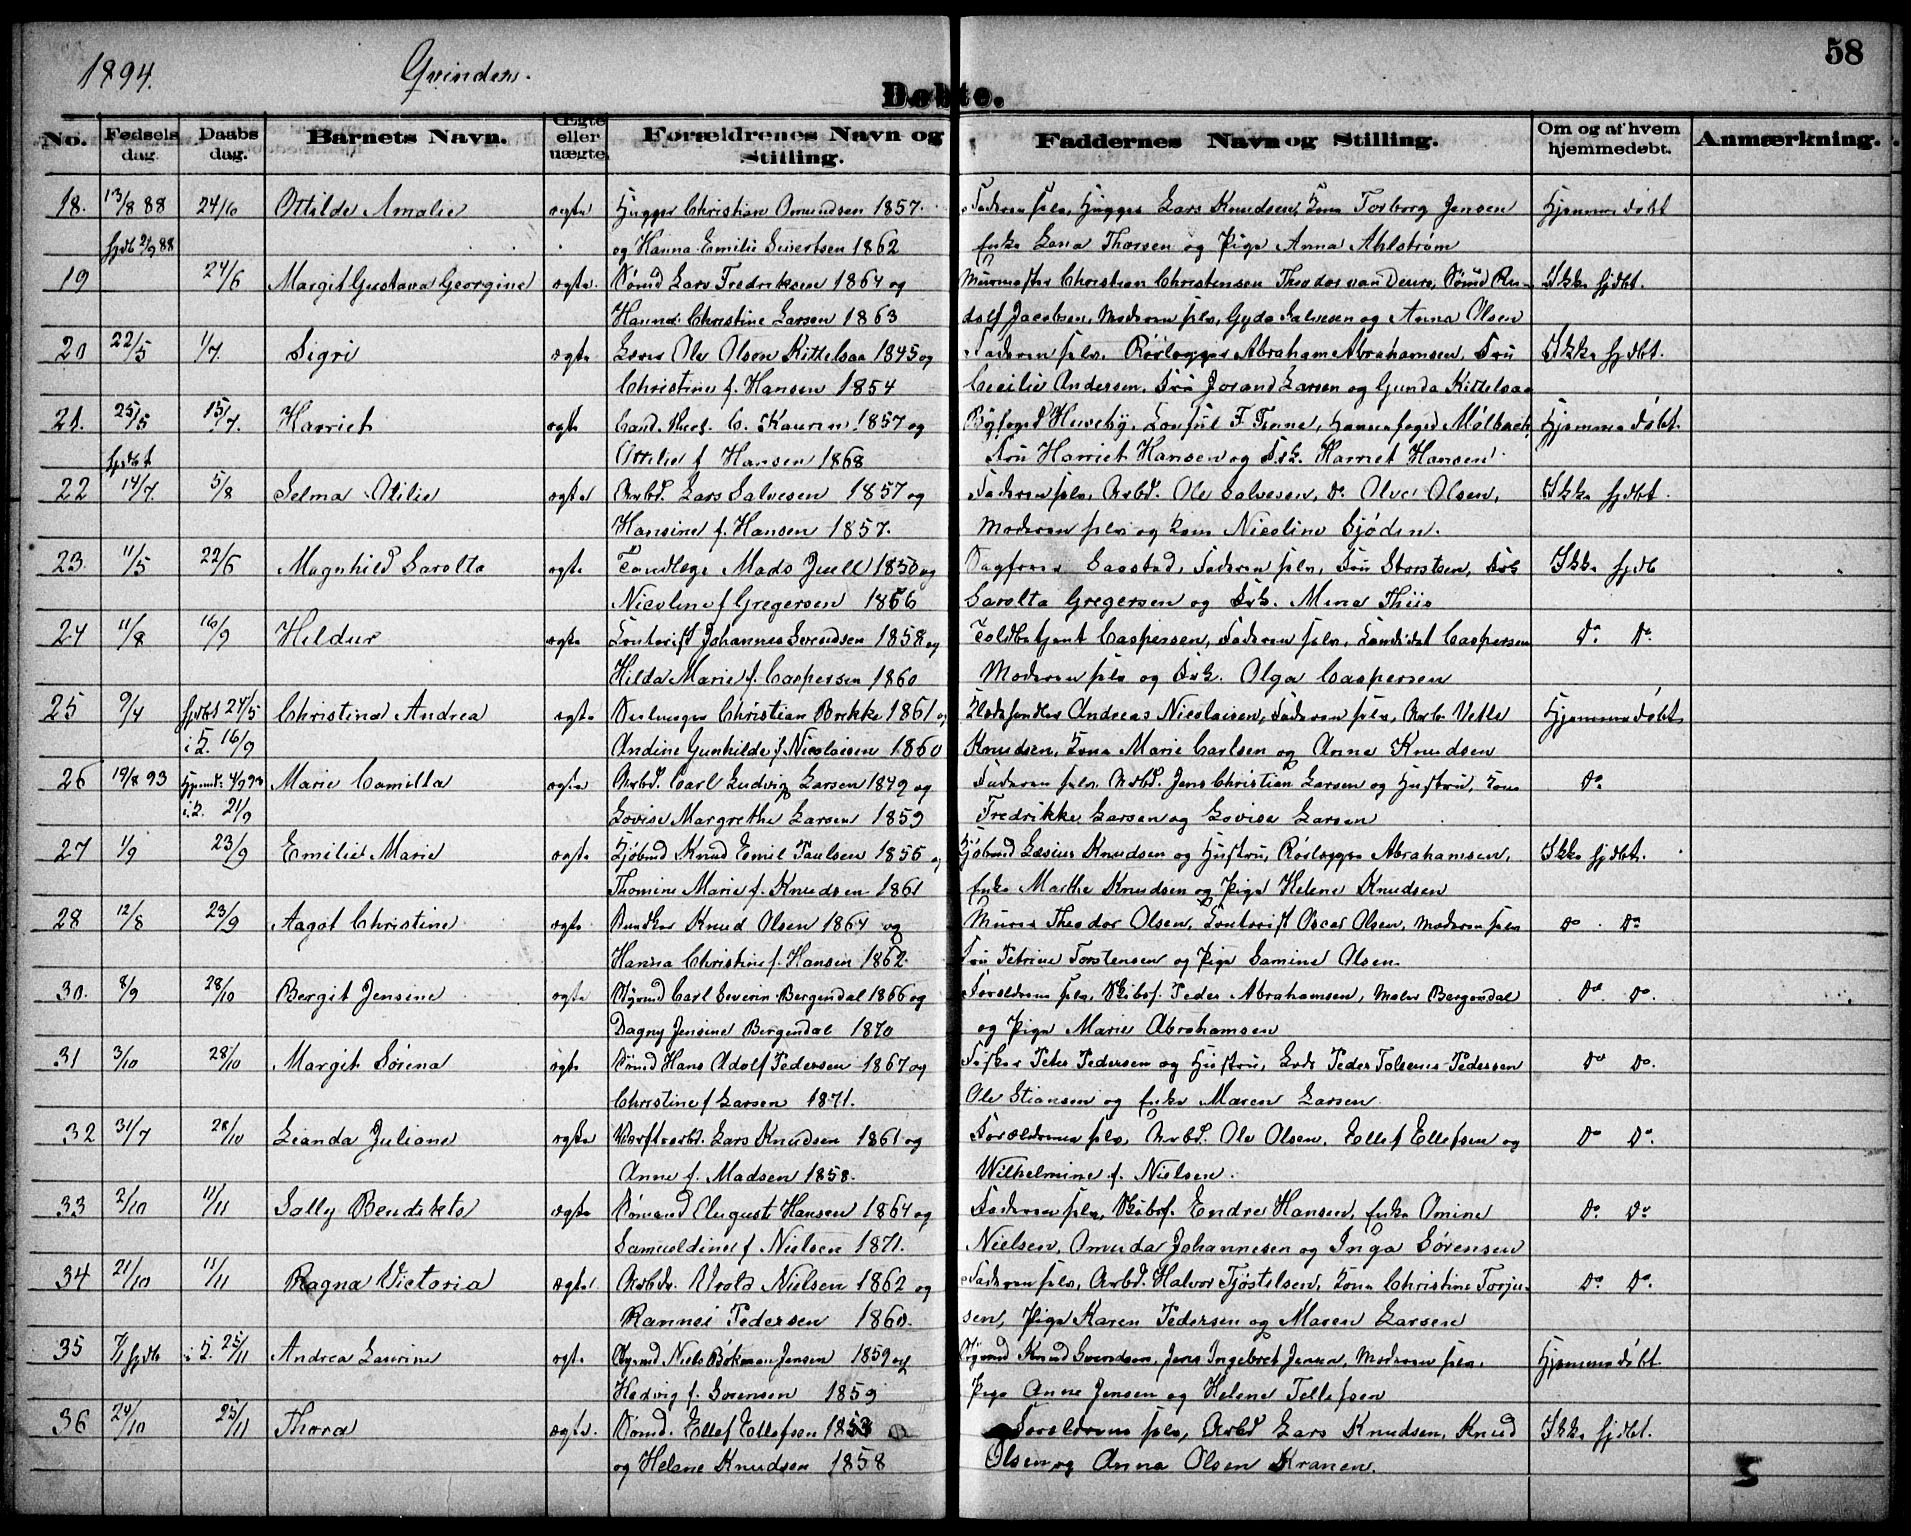 1894. Qvinder. 58
Døbte.
No. Fødsels dag. Daabs dag. Barnets Navn. Ægte eller uægte Forældrenes Navn og Stilling. Faddernes Navn og Stilling. Om og af hvem hjemmedøbt. Anmærkning.
18. 13/8 88 24/6 Ottilde Amalie ægte Hugger Christian Omundsen 1857. Faderen selv, Hugger Lars Knudsen, Kona Torborg Jensen Hjemmedøbt
hjdb 2/9 88 og Hanna Emilie Sivertsen 1862 Enke Lena Thorsen og Pige Anna Ahlstrøm
19 24/6 Margit Gustava Georgine ægte. Sømd Lars Fredriksen 1864 og Murmester Christian Christensen Theodor van Deurs, Sømd Ru- Ikke hjdbt.
Hanna Christine Larsen 1863 dolf Jacobsen, Moderen selv, Gyda Salvesen og Anna Olsen
20 22/5 1/7. Sigri ægte Ole Olsen Kittelsaa 1845 og Faderen selv. Rørlægger Abraham Abrahamsen, Fru Ikke hjdbt.
Christine f. Hansen 1854 Cecilie Andersen, Fru Jorand Larsen og Gunda Kittelsaa
21. 25/5 15/7. Harriet ægte Cand. theol. C. Kaurin 1857 og Byfoged Hvseby, Konsul F. Finne, Havnefoged Mølbach, Hjemmedøbt.
hjdbt Ottilie f Hansen 1868 Fru Harriet Hansen og Frk. Harriet Hansen.
22 14/7. 5/8 Selma Otilie ægte Arbd. Lars Salvesen 1857 og Faderen selv, Arbd. Ole Salvesen, do Olves Olsen, Ikke hjdbt.
Hansine f. Hansen 1857. Moderen selv og Kone Nicoline Sjödin.
23. 11/5 22/6 Magnhild Sarolta ægte Tandlæge Mads Juell 1850 og Sagfører Saastad, Faderen selv, Fru Storsteen, Frk Ikke hjdb
Nicoline f Gregersen 1866 Sarolta Gregersen og Frk. Mina Thiis
24 11/8 16/9 Hildur ægte Kontorist Johannes Svendsen 1858 og Toldbetjent Caspersen, Faderen selv, Kandidat Caspersen Do Do.
Hilda Marie f. Caspersen 1860 Moderen selv og Frk. Olga Caspersen
25 9/4 hjdbt 24/5 Christina Andrea ægte Christian Brekke 1861 og Klædehandler Andreas Nicolaisen, Faderen selv, Arb. Vetle Hjemmedøbt
i K. 16/9 Andine Gunhilde f. Nicolaisen 1860 Knudsen, Kona Marie Carlsen og Anne Knudsen
26 19/8 93 Hjemd. 4/9 93 Marie Camilla ægte Arbd. Carl Ludvig Larsen 1849 og Faderen selv. Arbd. Jens Christian Larsen og Hustru, Kone Do
i K. 21/9 Lovise Margrethe Larsen 1859 Fredrikke Larsen og Lovise Larsen
27 1/9 23/9 Emilie Marie ægte Kjøbmd Knud Emil Paulsen 1855 og Kjøbmd Læsius Knudsen og Hustru, Rørlægger Abrahamsen, Ikke hjdbt.
Thomine Marie f. Knudsen 1861 Enke Marthe Knudsen og Pige Helene Knudsen
28 12/8 23/9 Aagot Christine ægte Bundtker Knud Olsen 1864 og Murer Theodor Olsen, Kontorist Oscar Olsen, Moderen selv Do. Do
Hanna Christine f. Hansen 1862. Fru Petrine Torstensen og Pige Samine Olsen.
30. 8/9 28/10 Bergit Jensine ægte Styrmd Carl Severin Bergendal 1866 og Forældrene selv, Skibsf. Peder Abrahamsen, Maler Bergendal Do Do.
Dagny Jensine Bergendal 1870 og Pige Marie Abrahamsen
31 3/10 28/10 Margit Sörena ægte Sømd Hans Adolf Pedersen 1867 og Fisker Peter Pedersen og Hustru, Lods Peder Tolsenes Pedersen Do Do.
Christine f Larsen 1871. Ole Stiansen og Enke Maren Larsen
32 31/7 28/10 Leanda Juliane ægte Værftsarbd. Lars Knudsen 1861 og Forældrene selv, Arbd. Ole Olsen, Ellef Ellefsen og Do Do.
Anne f. Madsen 1858. Wilhelmine f. Nielsen.
33 2/10 11/11 Sally Bendikte ægte Sømand August Hansen 1864 og Faderen selv, Skibsf. Endre Hansen, Enke Omine Do. Do
Samueldine f Nielsen 1871. Nielsen, Omunda Johannesen og Inga Sørensen
34 21/10 11/11 Ragna Victoria ægte Arbdr. Arold Nielsen 1862 og Faderen selv, Arbd. Halvor Tjøstelsen, Kona Christine Torju- Do Do.
Rannei Pedersen 1860. sen, Pige Karen Pedersen og Maren Larsen
35 7/1 hjdb i K. 25/11 Andrea Laurine ægte Styrmd Niels Bökman Jensen 1859 og Styrmd Knud Svendsen, Jens Ingebret Jensen, Moderen selv. Hjemmedøbt
Hedvig f. Sørensen 1859 Pige Anne Jensen og Helene Tellefsen
36 24/10 25/11 Thora ægte. Sømd. Ellef Ellefsen 1853 Forældrene selv, Arbd Lars Knudsen, Knud Ikke hjdbt.
og Helene Knudsen 1858 Olsen og Anna Olsen Kranen.
5